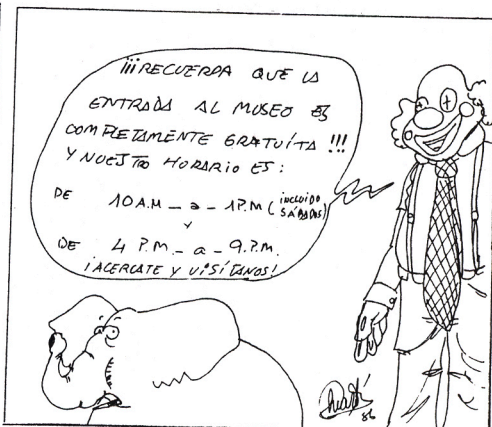 ¡¡¡RECUERDA QUE LA
ENTRADA AL MUSEO ES
COMPLETAMENTE GRATUÍTA !!!
Y NUESTRO HORARIO ES:
DE 10 A.M _ a _ 1 P.M (incluido SÁBADOS)
Y
DE 4 P.M _ a _ 9.P.M.
¡ACERCATE Y VISÍTANOS!
86